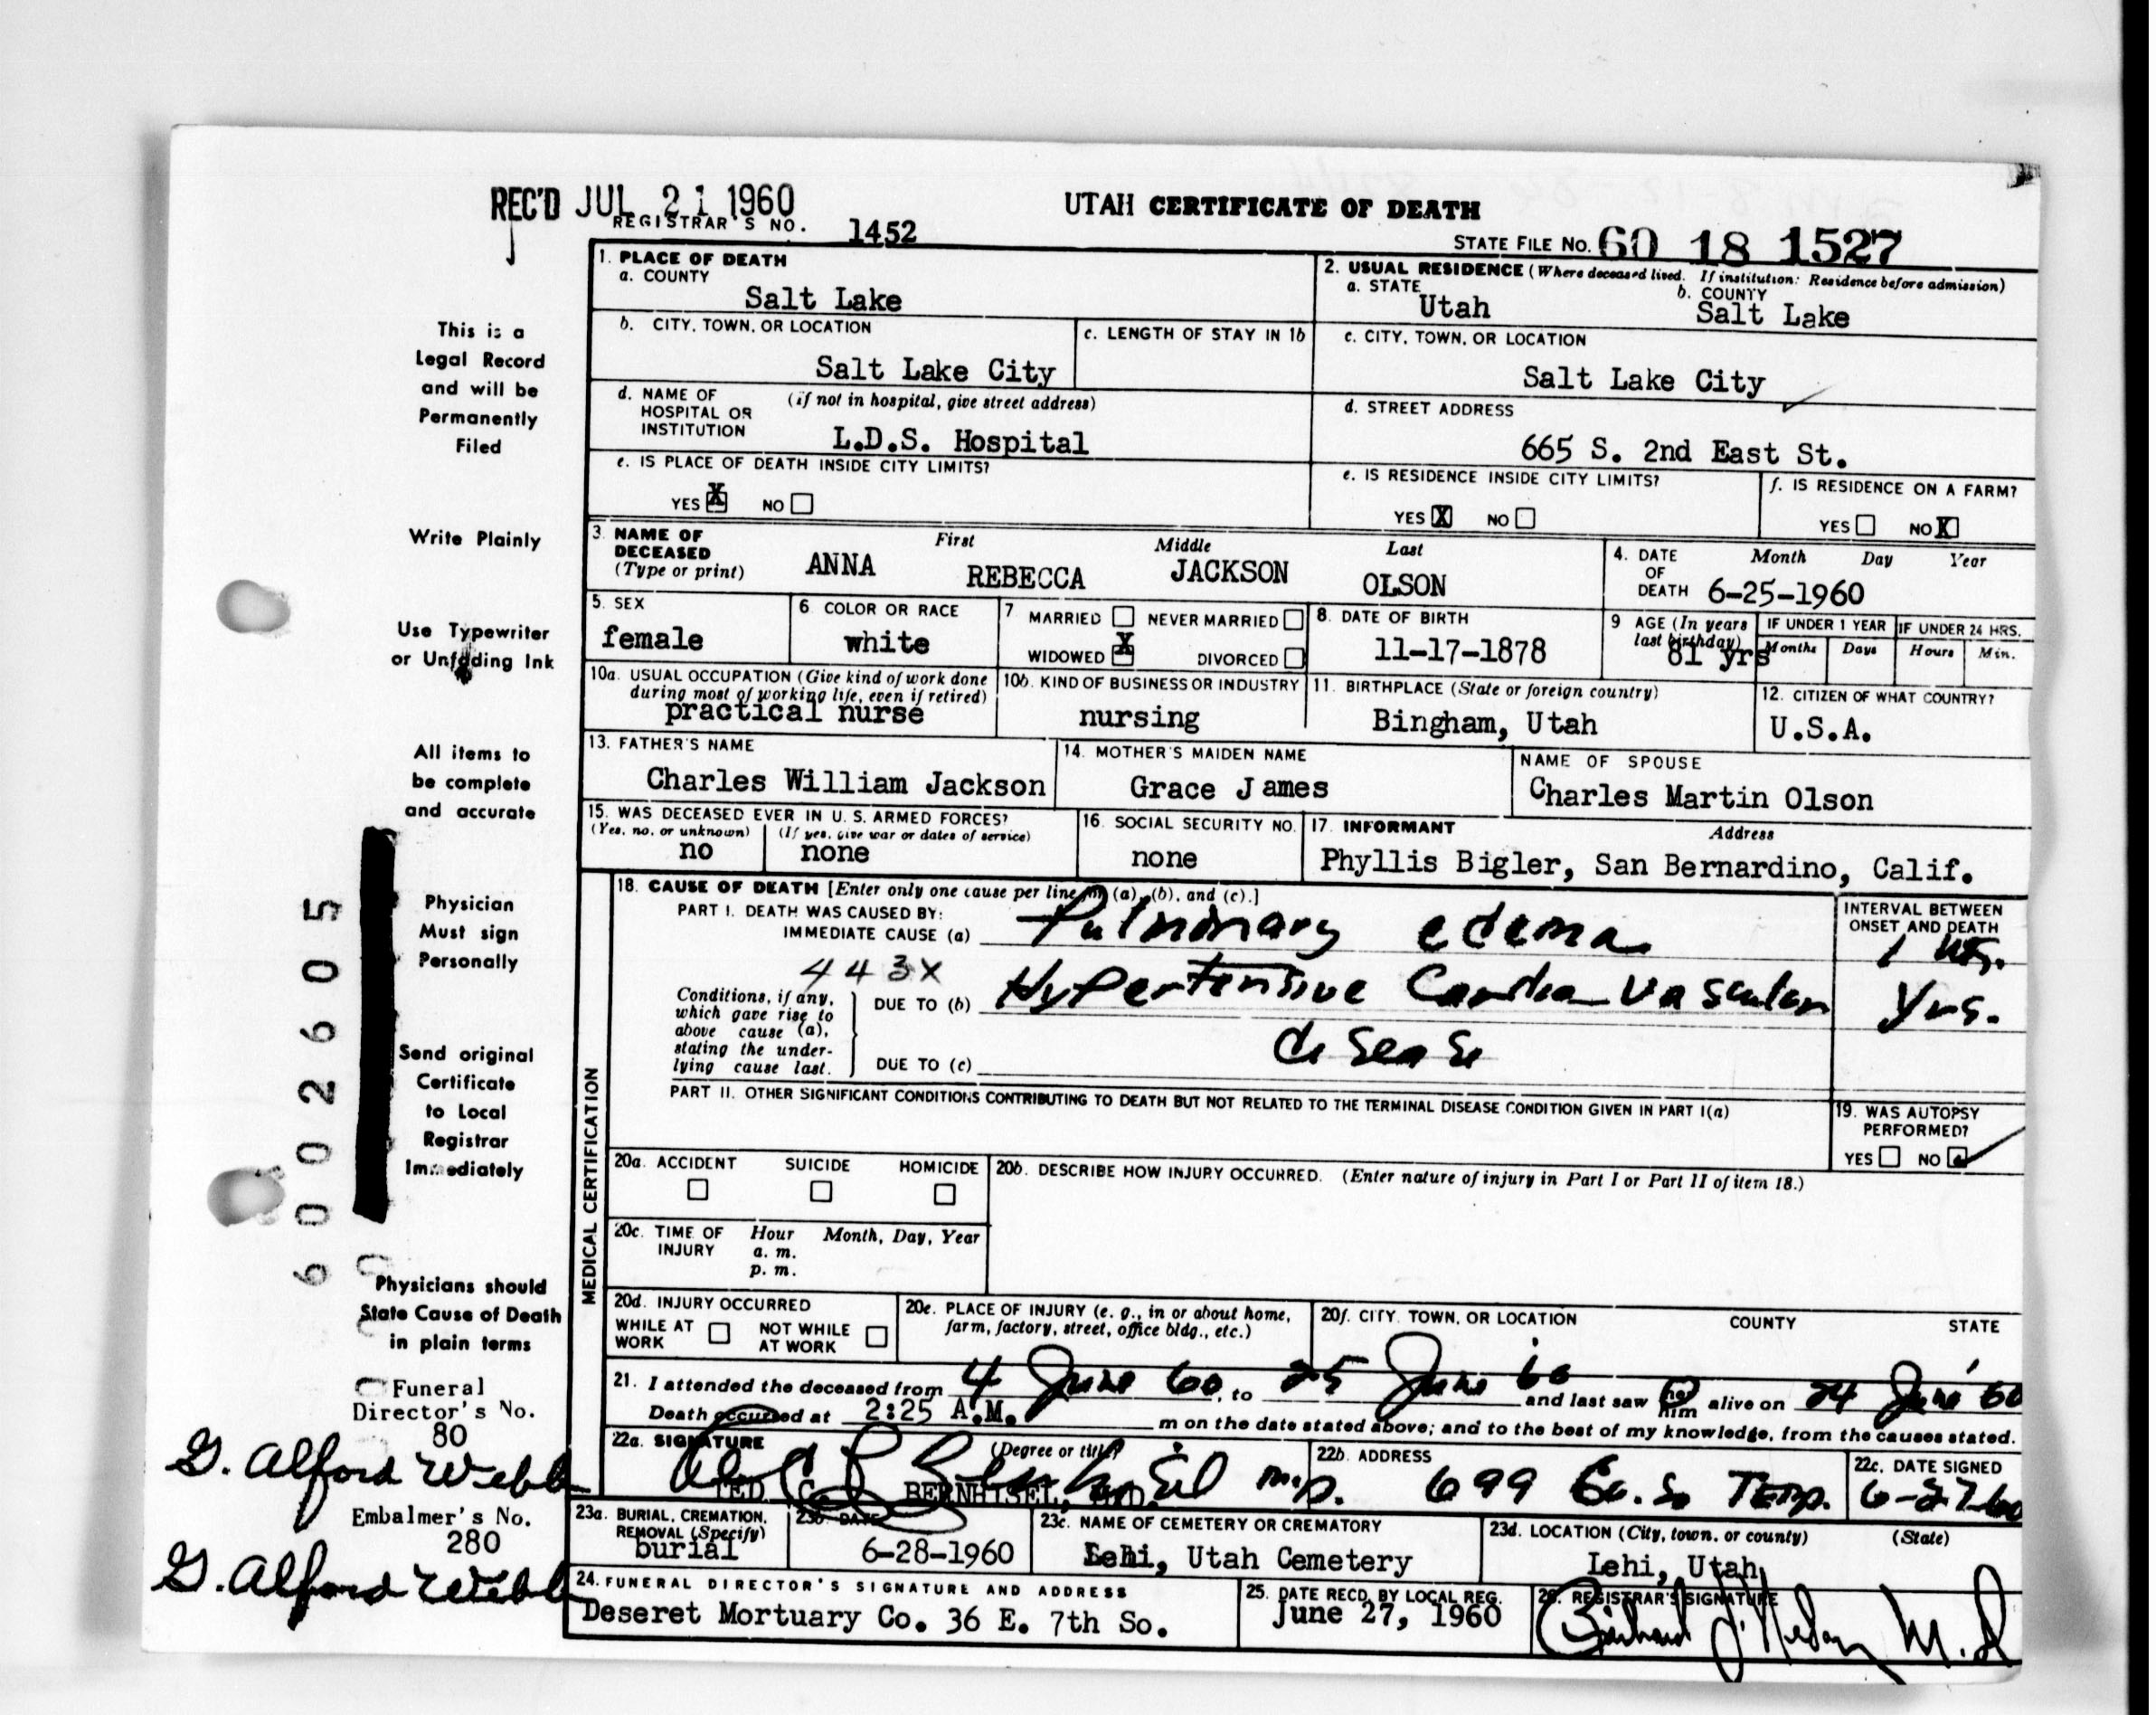 REC'D JUL 21 1960
REGISTRAR'S NO. 1452
UTAH CERTIFICATE OF DEATH
STATE FILE NO. 60 18 1527
This is a
Legal Record
and will be
Permanently
Filed
Write Plainly
Use Typewriter
or Unfading Ink
All items to
be complete
and accurate
Physician
Must sign
Personally
Send original
Certificate
to Local
Registrar
Immediately
Physicians should
State Cause of Death
in plain terms
Funeral
Director's No.
80
G. Alford Webb
Embalmer's No.
280
G. Alford Webb
6002605
1. PLACE OF DEATH
a. COUNTY
Salt Lake
2. USUAL RESIDENCE (Where deceased lived. If institution: Residence before admission)
a. STATE
Utah
b. COUNTY
Salt Lake
b. CITY, TOWN, OR LOCATION
Salt Lake City
c. LENGTH OF STAY IN 1b
c. CITY, TOWN, OR LOCATION
Salt Lake City
d. NAME OF HOSPITAL OR INSTITUTION (if not in hospital, give street address)
L.D.S. Hospital
d. STREET ADDRESS
665 S. 2nd East St.
e. IS PLACE OF DEATH INSIDE CITY LIMITS?
YES X NO
e. IS RESIDENCE INSIDE CITY LIMITS?
YES X NO
f. IS RESIDENCE ON A FARM?
YES NO X
3. NAME OF DECEASED (Type or print)
First Middle Last
ANNA REBECCA JACKSON OLSON
4. DATE OF DEATH Month Day Year
6-25-1960
5. SEX
female
6. COLOR OR RACE
white
7 MARRIED NEVER MARRIED
WIDOWED X DIVORCED
8. DATE OF BIRTH
11-17-1878
9 AGE (In years last birthday)
81 yrs
IF UNDER 1 YEAR
Months Days
IF UNDER 24 HRS.
Hours Min.
10a. USUAL OCCUPATION (Give kind of work done during most of working life, even if retired)
practical nurse
10b. KIND OF BUSINESS OR INDUSTRY
nursing
11. BIRTHPLACE (State or foreign country)
Bingham, Utah
12. CITIZEN OF WHAT COUNTRY?
U.S.A.
13. FATHER'S NAME
Charles William Jackson
14. MOTHER'S MAIDEN NAME
Grace James
NAME OF SPOUSE
Charles Martin Olson
15. WAS DECEASED EVER IN U. S. ARMED FORCES?
(Yes, no, or unknown) (If yes, give war or dates of service)
no none
16. SOCIAL SECURITY NO.
none
17. INFORMANT Address
Phyllis Bigler, San Bernardino, Calif.
MEDICAL CERTIFICATION
18. CAUSE OF DEATH [Enter only one cause per line (a), (b), and (c).]
PART I. DEATH WAS CAUSED BY:
IMMEDIATE CAUSE (a) Pulmonary edema
INTERVAL BETWEEN ONSET AND DEATH
443X
Conditions, if any, which gave rise to above cause (a), stating the underlying cause last.
DUE TO (b) Hypertensive Cardio-Vascular
Yrs.
disease
DUE TO (c)
PART II. OTHER SIGNIFICANT CONDITIONS CONTRIBUTING TO DEATH BUT NOT RELATED TO THE TERMINAL DISEASE CONDITION GIVEN IN PART I(a)
19. WAS AUTOPSY PERFORMED?
YES NO
20a. ACCIDENT SUICIDE HOMICIDE
20b. DESCRIBE HOW INJURY OCCURRED. (Enter nature of injury in Part I or Part II of item 18.)
20c. TIME OF INJURY Hour Month, Day, Year
a. m.
p. m.
20d. INJURY OCCURRED
WHILE AT WORK NOT WHILE AT WORK
20e. PLACE OF INJURY (e. g., in or about home, farm, factory, street, office bldg., etc.)
20f. CITY, TOWN, OR LOCATION COUNTY STATE
21. I attended the deceased from 4 June 60, to 25 June 60 and last saw her him alive on 24 June 60
Death occurred at 2:25 A.M. m on the date stated above; and to the best of my knowledge, from the causes stated.
22a. SIGNATURE (Degree or title)
TED C. BERNHISEL, M.D.
M.D.
22b. ADDRESS
699 So. Temp.
22c. DATE SIGNED
6-27-60
23a. BURIAL, CREMATION, REMOVAL (Specify)
burial
23b. DATE
6-28-1960
23c. NAME OF CEMETERY OR CREMATORY
Lehi, Utah Cemetery
23d. LOCATION (City, town, or county) (State)
Lehi, Utah
24. FUNERAL DIRECTOR'S SIGNATURE AND ADDRESS
Deseret Mortuary Co. 36 E. 7th So.
25. DATE RECD. BY LOCAL REG.
June 27, 1960
26. REGISTRAR'S SIGNATURE
M.D